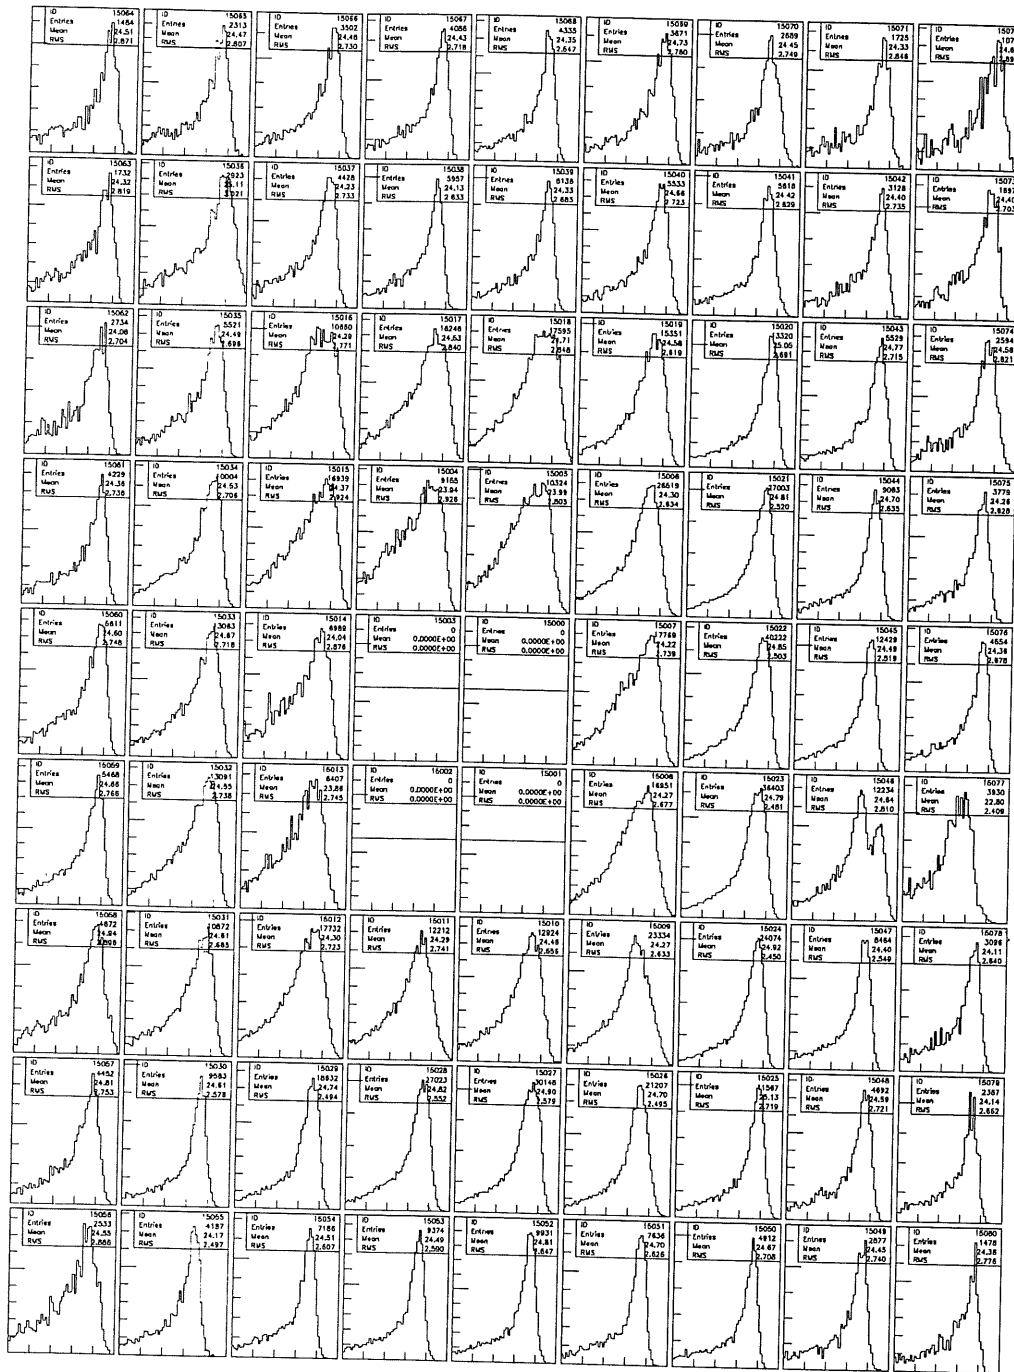 ID 15064
Entries 1484
Mean 24.51
RMS 2.671
ID 15065
Entries 2313
Mean 24.47
RMS 2.807
ID 15066
Entries 3502
Mean 24.48
RMS 2.730
ID 15067
Entries 4086
Mean 24.43
RMS 2.718
ID 15068
Entries 4335
Mean 24.35
RMS 2.647
ID 15069
Entries 3671
Mean 24.73
RMS 2.780
ID 15070
Entries 2689
Mean 24.45
RMS 2.749
ID 15071
Entries 1725
Mean 24.33
RMS 2.846
ID
Entries
Mean
RMS
ID 15063
Entries 1732
Mean 24.32
RMS 2.819
ID 15036
Entries 2923
Mean 25.11
RMS 3.021
ID 15037
Entries 4428
Mean 24.23
RMS 2.733
ID 15038
Entries 5957
Mean 24.13
RMS 2.633
ID 15039
Entries 6138
Mean 24.33
RMS 2.683
ID 15040
Entries 5533
Mean 24.66
RMS 2.723
ID 15041
Entries 5618
Mean 24.42
RMS 2.629
ID 15042
Entries 3128
Mean 24.40
RMS 2.735
ID 15073
Entries 1897
Mean 24.40
RMS 2.703
ID 15062
Entries 2734
Mean 24.08
RMS 2.704
ID 15035
Entries 5521
Mean 24.49
RMS 2.696
ID 15016
Entries 10680
Mean 24.29
RMS 2.771
ID 15017
Entries 16246
Mean 24.53
RMS 2.640
ID 15018
Entries 17595
Mean
RMS
ID 15019
Entries 15351
Mean 24.58
RMS 2.619
ID 15020
Entries 13320
Mean 25.05
RMS 2.691
ID 15043
Entries 5529
Mean 24.77
RMS 2.715
ID 15074
Entries 2594
Mean 24.58
RMS 2.621
ID 15061
Entries 4229
Mean 24.38
RMS 2.736
ID 15034
Entries
Mean 24.53
RMS 2.706
ID 15015
Entries 16939
Mean 24.37
RMS 2.924
ID 15004
Entries 9165
Mean 23.94
RMS 2.926
ID 15005
Entries 10324
Mean 23.99
RMS 2.803
ID 15006
Entries 26619
Mean 24.30
RMS 2.634
ID 15021
Entries 27003
Mean 24.81
RMS 2.520
ID 15044
Entries 9063
Mean 24.70
RMS 2.635
ID 15075
Entries 3779
Mean 24.26
RMS 2.628
ID 15060
Entries 5611
Mean 24.60
RMS 2.748
ID 15033
Entries 13063
Mean 24.67
RMS 2.718
ID 15014
Entries 6989
Mean 24.04
RMS 2.876
ID 15003
Entries 0
Mean 0.0000E+00
RMS 0.0000E+00
ID 15000
Entries 0
Mean 0.0000E+00
RMS 0.0000E+00
ID 15007
Entries 17769
Mean 24.22
RMS 2.739
ID 15022
Entries 40222
Mean 24.85
RMS 2.503
ID 15045
Entries 12429
Mean 24.49
RMS 2.519
ID 15076
Entries 4654
Mean 24.38
RMS 2.678
ID 15059
Entries 5468
Mean 24.66
RMS 2.766
ID 15032
Entries 13091
Mean 24.55
RMS 2.738
ID 15013
Entries 6407
Mean 23.86
RMS 2.745
ID 15002
Entries 0
Mean 0.0000E+00
RMS 0.0000E+00
ID 15001
Entries 0
Mean 0.0000E+00
RMS 0.0000E+00
ID 15008
Entries 16951
Mean 24.27
RMS 2.677
ID 15023
Entries 36403
Mean 24.79
RMS 2.461
ID 15046
Entries 12234
Mean 24.64
RMS 2.810
ID 15077
Entries 3930
Mean 22.80
RMS 2.409
ID 15058
Entries 4672
Mean 24.94
RMS 2.898
ID 15031
Entries 10872
Mean 24.61
RMS 2.685
ID 15012
Entries 17732
Mean 24.30
RMS 2.723
ID 15011
Entries 12212
Mean 24.29
RMS 2.741
ID 15010
Entries 12924
Mean 24.48
RMS 2.656
ID 15009
Entries 23334
Mean 24.27
RMS 2.633
ID 15024
Entries 24074
Mean 24.92
RMS 2.450
ID 15047
Entries 8464
Mean 24.40
RMS 2.549
ID 15078
Entries 3096
Mean 24.11
RMS 2.640
ID 15057
Entries 4452
Mean 24.81
RMS 2.753
ID 15030
Entries 9583
Mean 24.61
RMS 2.578
ID 15029
Entries 18632
Mean 24.74
RMS 2.494
ID 15028
Entries 27023
Mean 24.82
RMS 2.552
ID 15027
Entries 30148
Mean 24.90
RMS 2.579
ID 15026
Entries 21207
Mean 24.70
RMS 2.495
ID 15025
Entries 11567
Mean 25.13
RMS 2.719
ID 15048
Entries 4692
Mean 24.59
RMS 2.721
ID 15079
Entries 2387
Mean 24.14
RMS 2.662
ID 15056
Entries 2533
Mean 24.55
RMS 2.886
ID 15055
Entries 4187
Mean 24.17
RMS 2.497
ID 15054
Entries 7186
Mean 24.51
RMS 2.607
ID 15053
Entries 9374
Mean 24.49
RMS 2.590
ID 15052
Entries 9931
Mean 24.81
RMS 2.647
ID 15051
Entries 7636
Mean 24.70
RMS 2.626
ID 15050
Entries 4912
Mean 24.67
RMS 2.708
ID 15049
Entries 2877
Mean 24.45
RMS 2.740
ID 15080
Entries 1478
Mean 24.38
RMS 2.776